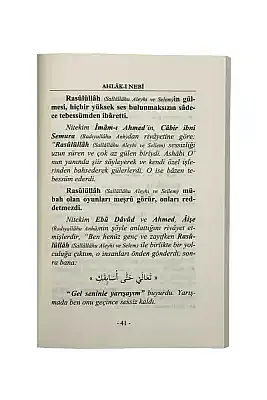 AHLÂK-I NEBÎ
Rasûlüllâh (Sallâllâhu Aleyhi ve Sellem)in gül-
mesi, hiçbir yüksek ses bulunmaksızın sâde-
ce tebessümden ibâretti.
Nitekim İmâm-ı Ahmed'in, Câbir ibni
Semura (Radıyallâhu Anhu)dan rivâyetine göre:
"Rasûlüllâh (Sallâllâhu Aleyhi ve Sellem) sessizliği
uzun süren ve çok az gülen biriydi. Ashâbı O'
nun yanında şiir söyleyerek ve kendi özel işlerin-
den bahsederek gülerlerdi. O ise bâzen te-
bessüm ederdi.
Rasûlüllâh (Sallâllâhu Aleyhi ve Sellem) mü-
bah olan oyunları meşrû görür, onları red-
detmezdi.
Nitekim Ebû Dâvûd ve Ahmed, Âişe
(Radıyallâhu Anhâ)nın şöyle anlattığını rivâyet et-
mişlerdir, "Ben henüz genç ve zayıfken Rasû-
lüllâh (Sallâllâhu Aleyhi ve Sellem) ile birlikte bir yol-
culuğa çıktım, o insanları önden gönderdi, son-
ra bana:
« تَعَالَيْ حَتَّى أُسَابِقَكِ »
"Gel seninle yarışayım" buyurdu. Yarış-
mada ben onu geçince sessiz kaldı.
- 41 -